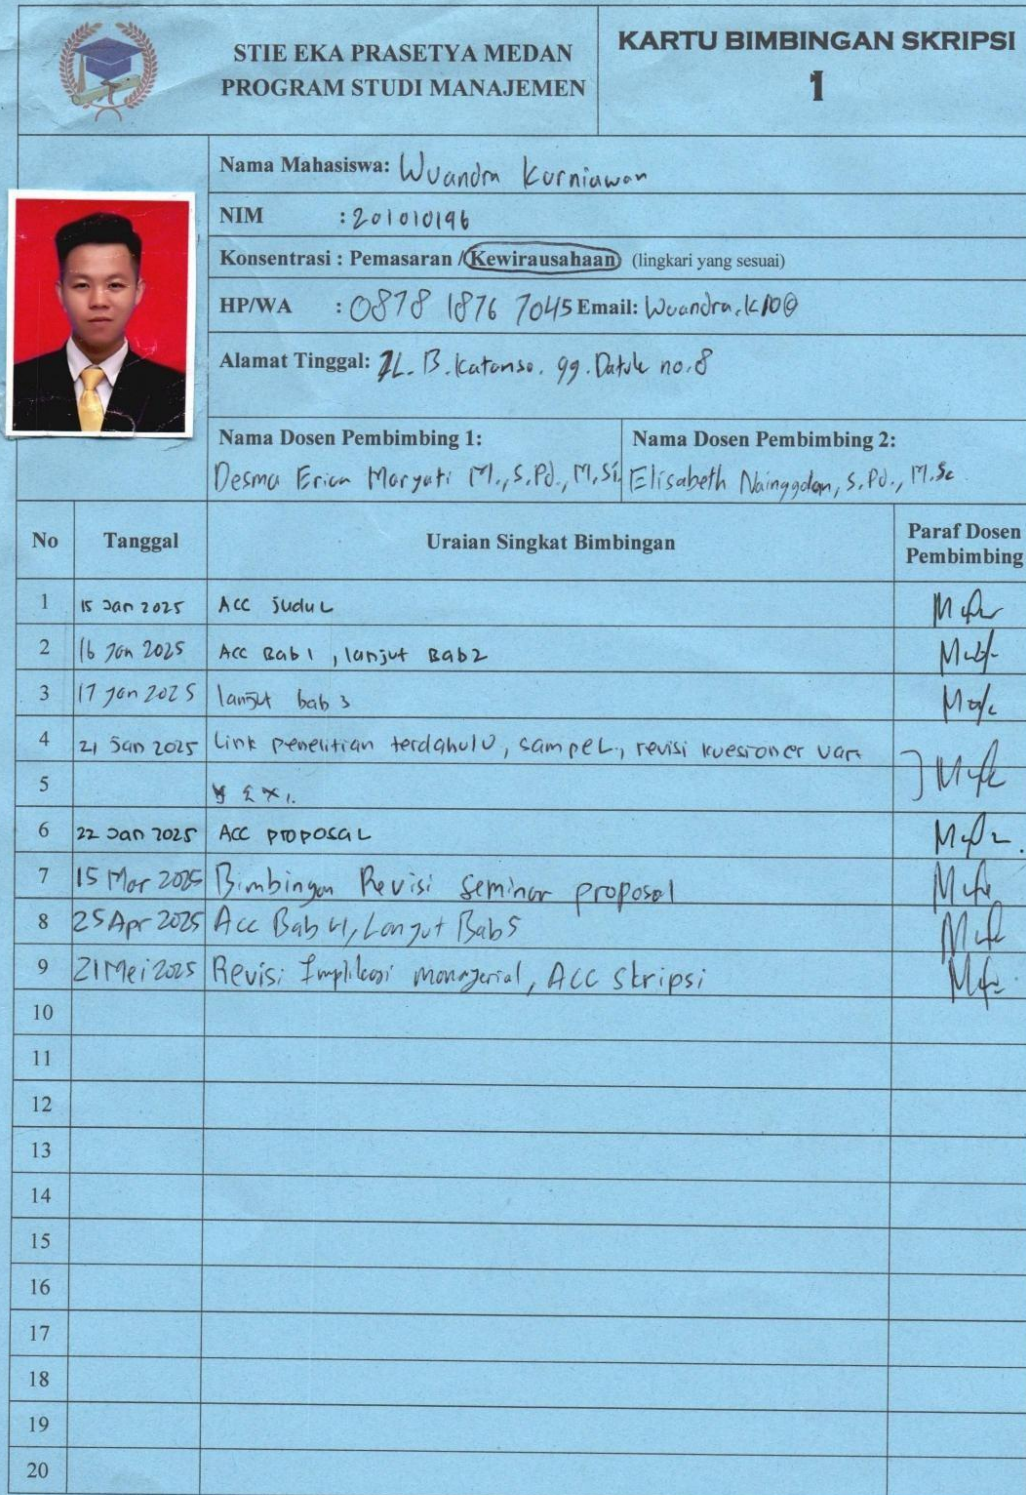 STIE EKA PRASETYA MEDAN
PROGRAM STUDI MANAJEMEN
KARTU BIMBINGAN SKRIPSI
1
Nama Mahasiswa: Wuandra Kurniawan
NIM : 201010196
Konsentrasi : Pemasaran / Kewirausahaan (lingkari yang sesuai)
HP/WA : 0878 1876 7045 Email: Wuandra.k10@
Alamat Tinggal: JL. B. Katamso. gg. Datuk no. 8
Nama Dosen Pembimbing 1: Nama Dosen Pembimbing 2:
Desma Erica Maryati M., S.Pd., M.Si. Elisabeth Nainggolan, S.Pd., M.Sc
No Tanggal Uraian Singkat Bimbingan Paraf Dosen Pembimbing
1 15 Jan 2025 Acc judul
2 16 Jan 2025 Acc Bab 1, lanjut Bab 2
3 17 Jan 2025 lanjut bab 3
4 21 Jan 2025 Link penelitian terdahulu, sampel, revisi kuesioner var.
5 Y & X1.
6 22 Jan 2025 Acc proposal
7 15 Mar 2025 Bimbingan Revisi seminar proposal
8 25 Apr 2025 Acc Bab 4, Lanjut Bab 5
9 21 Mei 2025 Revisi Implikasi managerial, ACC Skripsi
10
11
12
13
14
15
16
17
18
19
20